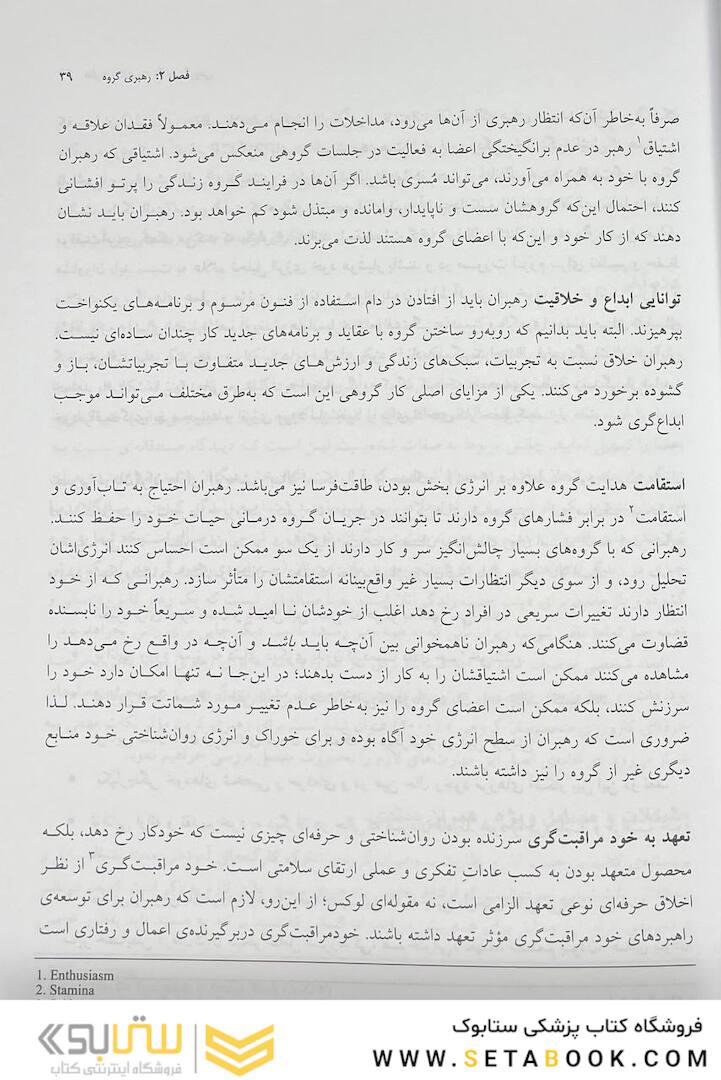 فصل ۲: رهبری گروه ۳۹
صرفاً به‌خاطر آن‌که انتظار رهبری از آن‌ها می‌رود، مداخلات را انجام می‌دهند. معمولاً فقدان علاقه و
اشتیاق۱ رهبر در عدم برانگیختگی اعضا به فعالیت در جلسات گروهی منعکس می‌شود. اشتیاقی که رهبران
گروه با خود به همراه می‌آورند، می‌تواند مُسری باشد. اگر آن‌ها در فرایند گروه زندگی را پرتو افشانی
کنند، احتمال این‌که گروهشان سست و ناپایدار، وامانده و مبتذل شود کم خواهد بود. رهبران باید نشان
دهند که از کار خود و این‌که با اعضای گروه هستند لذت می‌برند.
توانایی ابداع و خلاقیت رهبران باید از افتادن در دام استفاده از فنون مرسوم و برنامه‌های یکنواخت
بپرهیزند. البته باید بدانیم که روبه‌رو ساختن گروه با عقاید و برنامه‌های جدید کار چندان ساده‌ای نیست.
رهبران خلاق نسبت به تجربیات، سبک‌های زندگی و ارزش‌های جدید متفاوت با تجربیاتشان، باز و
گشوده برخورد می‌کنند. یکی از مزایای اصلی کار گروهی این است که به‌طرق مختلف می‌تواند موجب
ابداع‌گری شود.
استقامت هدایت گروه علاوه بر انرژی بخش بودن، طاقت‌فرسا نیز می‌باشد. رهبران احتیاج به تاب‌آوری و
استقامت۲ در برابر فشارهای گروه دارند تا بتوانند در جریان گروه درمانی حیات خود را حفظ کنند.
رهبرانی که با گروه‌های بسیار چالش‌انگیز سر و کار دارند از یک سو ممکن است احساس کنند انرژی‌اشان
تحلیل رود، و از سوی دیگر انتظارات بسیار غیر واقع‌بینانه استقامتشان را متأثر سازد. رهبرانی که از خود
انتظار دارند تغییرات سریعی در افراد رخ دهد اغلب از خودشان نا امید شده و سریعاً خود را نابسنده
قضاوت می‌کنند. هنگامی‌که رهبران ناهمخوانی بین آن‌چه باید باشد و آن‌چه در واقع رخ می‌دهد را
مشاهده می‌کنند ممکن است اشتیاقشان را به کار از دست بدهند؛ در این‌جا نه تنها امکان دارد خود را
سرزنش کنند، بلکه ممکن است اعضای گروه را نیز به‌خاطر عدم تغییر مورد شماتت قرار دهند. لذا
ضروری است که رهبران از سطح انرژی خود آگاه بوده و برای خوراک و انرژی روان‌شناختی خود منابع
دیگری غیر از گروه را نیز داشته باشند.
تعهد به خود مراقبت‌گری سرزنده بودن روان‌شناختی و حرفه‌ای چیزی نیست که خودکار رخ دهد، بلکه
محصول متعهد بودن به کسب عاداتِ تفکری و عملی ارتقای سلامتی است. خود مراقبت‌گری۳ از نظر
اخلاق حرفه‌ای نوعی تعهد الزامی است، نه مقوله‌ای لوکس؛ از این‌رو، لازم است که رهبران برای توسعه‌ی
راهبردهای خود مراقبت‌گری مؤثر تعهد داشته باشند. خودمراقبت‌گری دربرگیرنده‌ی اعمال و رفتاری است
1. Enthusiasm
2. Stamina
ستابوک
فروشگاه اینترنتی کتاب
فروشگاه کتاب پزشکی ستابوک
WWW.SETABOOK.COM